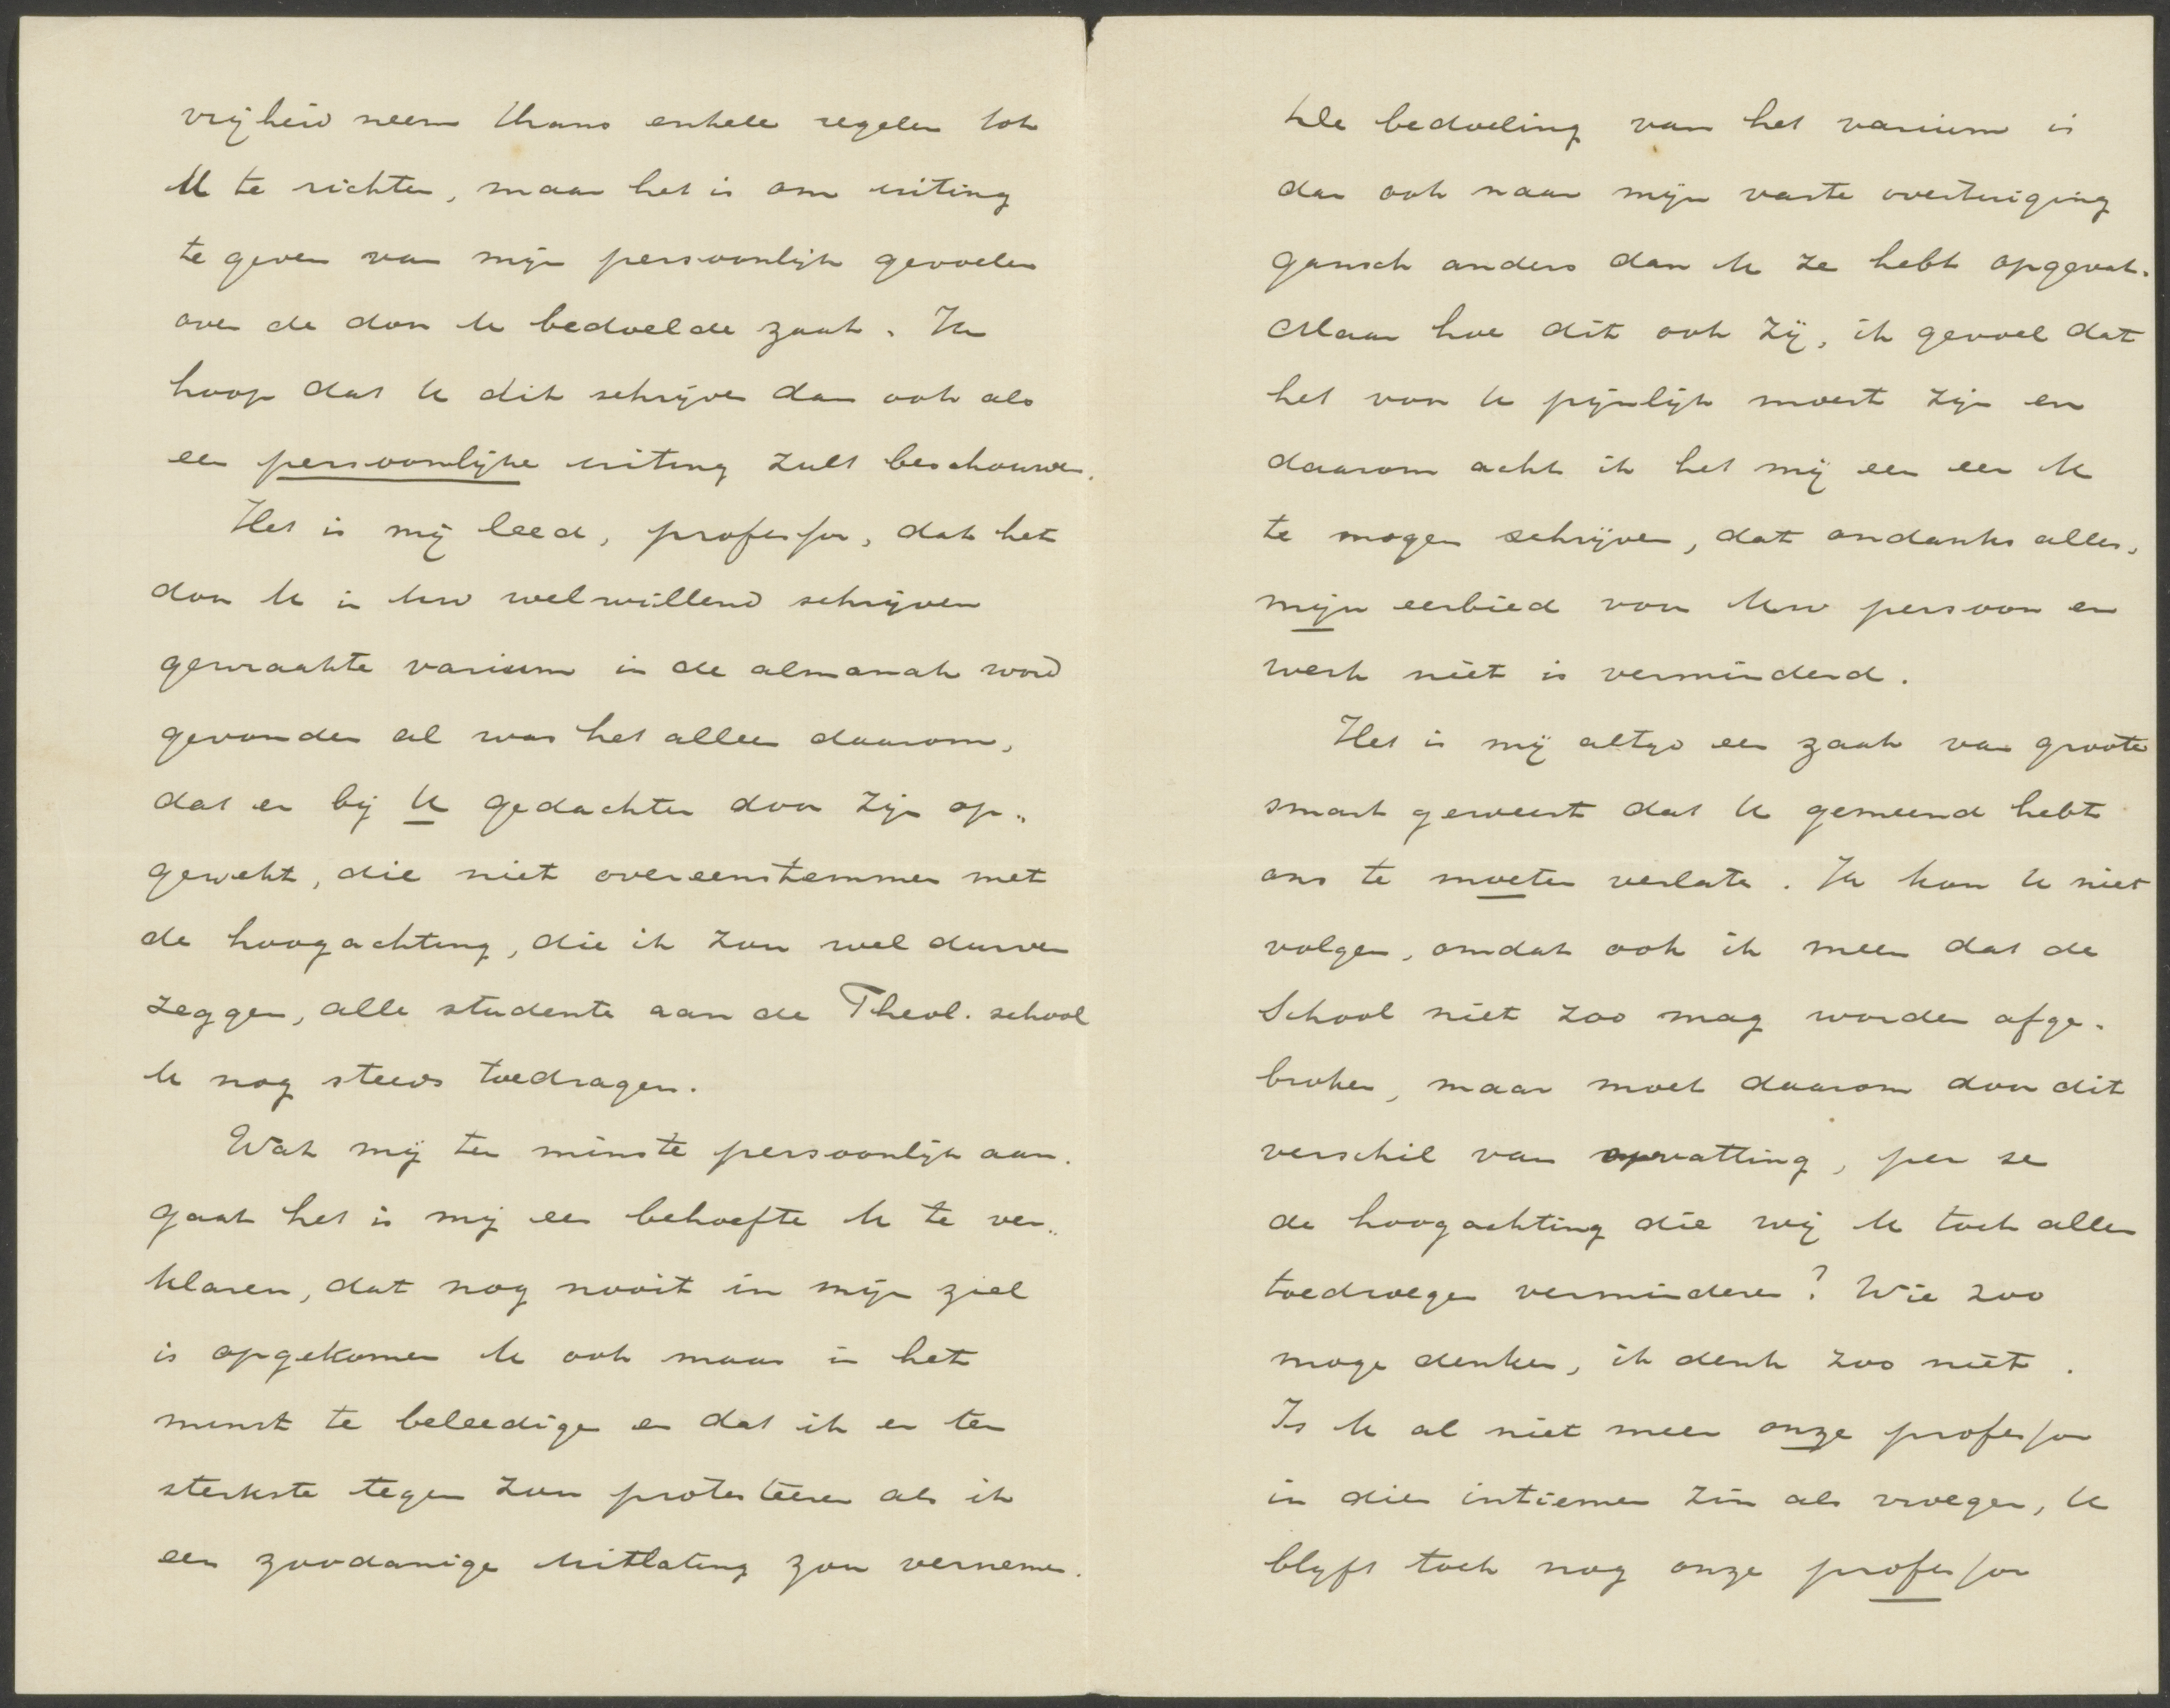 vrijheid neem thans enkele regelen tot
U te richten, maar het is om uiting
te geven van mijn persoonlijk gevoelen
over de door U bedoelde zaak. Ik
hoop dat U dit schrijven dan ook als
een persoonlijke uiting zult beschouwen.
Het is mij leed, professor, dat het
door U in Uw welwillend schrijven
gewraakte varium in de almanak word
gevonden al was het alleen daarom,
dat er bij U gedachten door zijn op„
gewekt, die niet overeenstemmen met
de hoogachting, die ik zou wel durven
zeggen, alle studenten aan de Theol. school
U nog steeds toedragen.
Wat mij ten minste persoonlijk aan„
gaat het is mij een behoefte U te ver„
klaren, dat nog nooit in mijn ziel
is opgekomen U ook maar in het
minst te beleedigen en dat ik er ten
sterkste tegen zou protesteeren als ik
een zoodanige uitlating zou vernemen.
De bedoeling van het varium is
dan ook naar mijn vaste overtuiging
gansch anders dan U ze hebt opgevat.
Maar hoe dit ook zij, ik gevoel dat
het voor U pijnlijk moest zijn en
daarom acht ik het mij een eer U
te mogen schrijven, dat ondanks alles,
mijn eerbied voor Uw persoon en
werk niet is verminderd.
Het is mij altijd een zaak van groote
smart geweest dat U gemeend hebt
ons te moeten verlaten. Ik kon U niet
volgen, omdat ook ik meen dat de
School niet zoo mag worden afge„
broken, maar moet daarom door dit
verschil van opvatting, per se
de hoogachting die wij U toch allen
toedroegen verminderen? Wie zoo
moge denken, ik denk zoo niet.
Is U al niet meer onze professor
in dien intiemen zin als vroeger, U
blijft toch nog onze professor